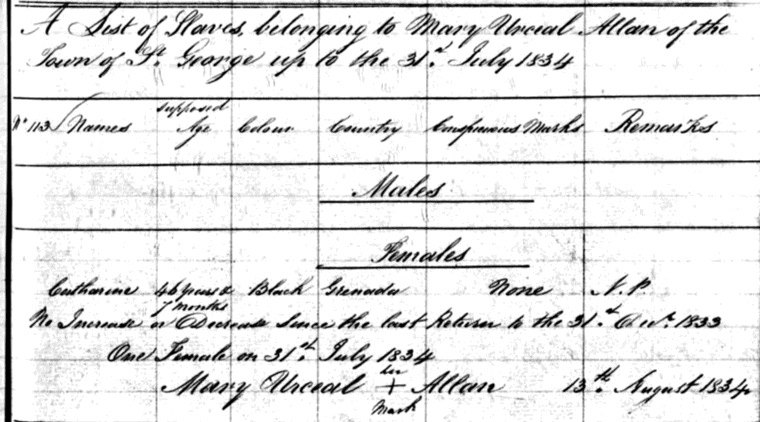 A List of Slaves, belonging to Mary Urceal Allan of the
Town of St. George up to the 31st. July 1834
No 113 Names supposed Age Colour Country Conspicuous Marks Remarks
Males
Females
Catharine 46 years & 7 months Black Grenada None N.P.
No Increase or Decrease Since the last Return to the 31st. 1833
One Female on 31st. July 1834
Mary Urceal her + Mark Allan 13th. August 1834